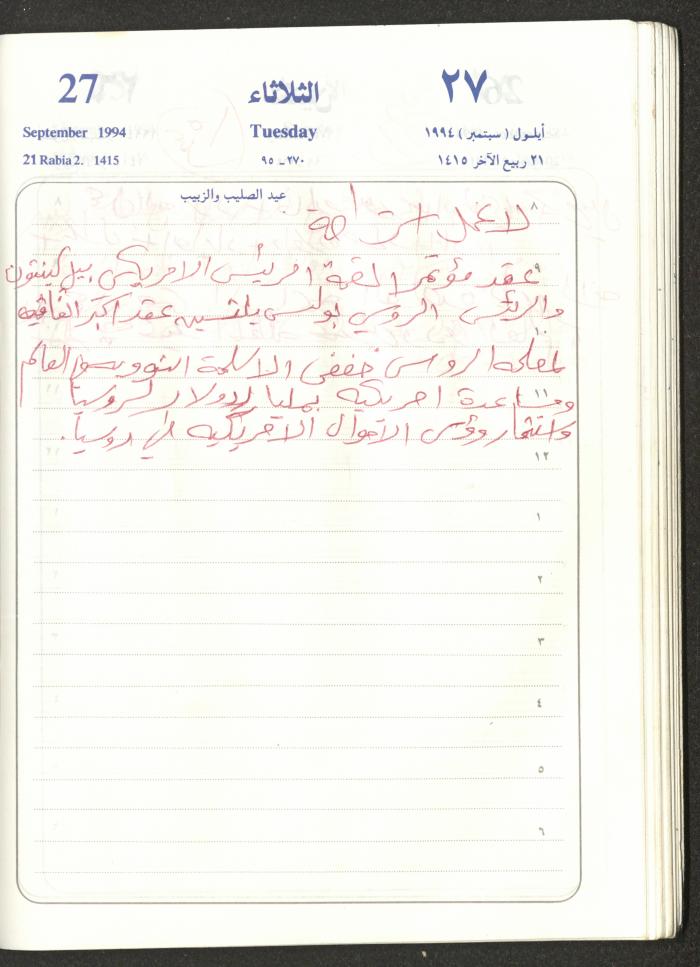 27 الثلاثاء ٢٧
September 1994 Tuesday أيلول (سبتمبر) ١٩٩٤
21 Rabia 2. 1415 ٢٧٠ - ٩٥ ٢١ ربيع الآخر ١٤١٥
عيد الصليب والزبيب
٨ لا عمل استراحة
٩ عقد مؤتمر القمة الامريكي بيل كلينتون
والرئيس الروسي بولس يلتسين عقد اكبر اتفاقيه
١٠
الاسلحة النوويه العالم
١١ ومساعدة امريكيه لروسيا
واستثمار رؤوس الاموال الامريكيه في روسيا.
١٢
١
٢
٣
٤
٥
٦